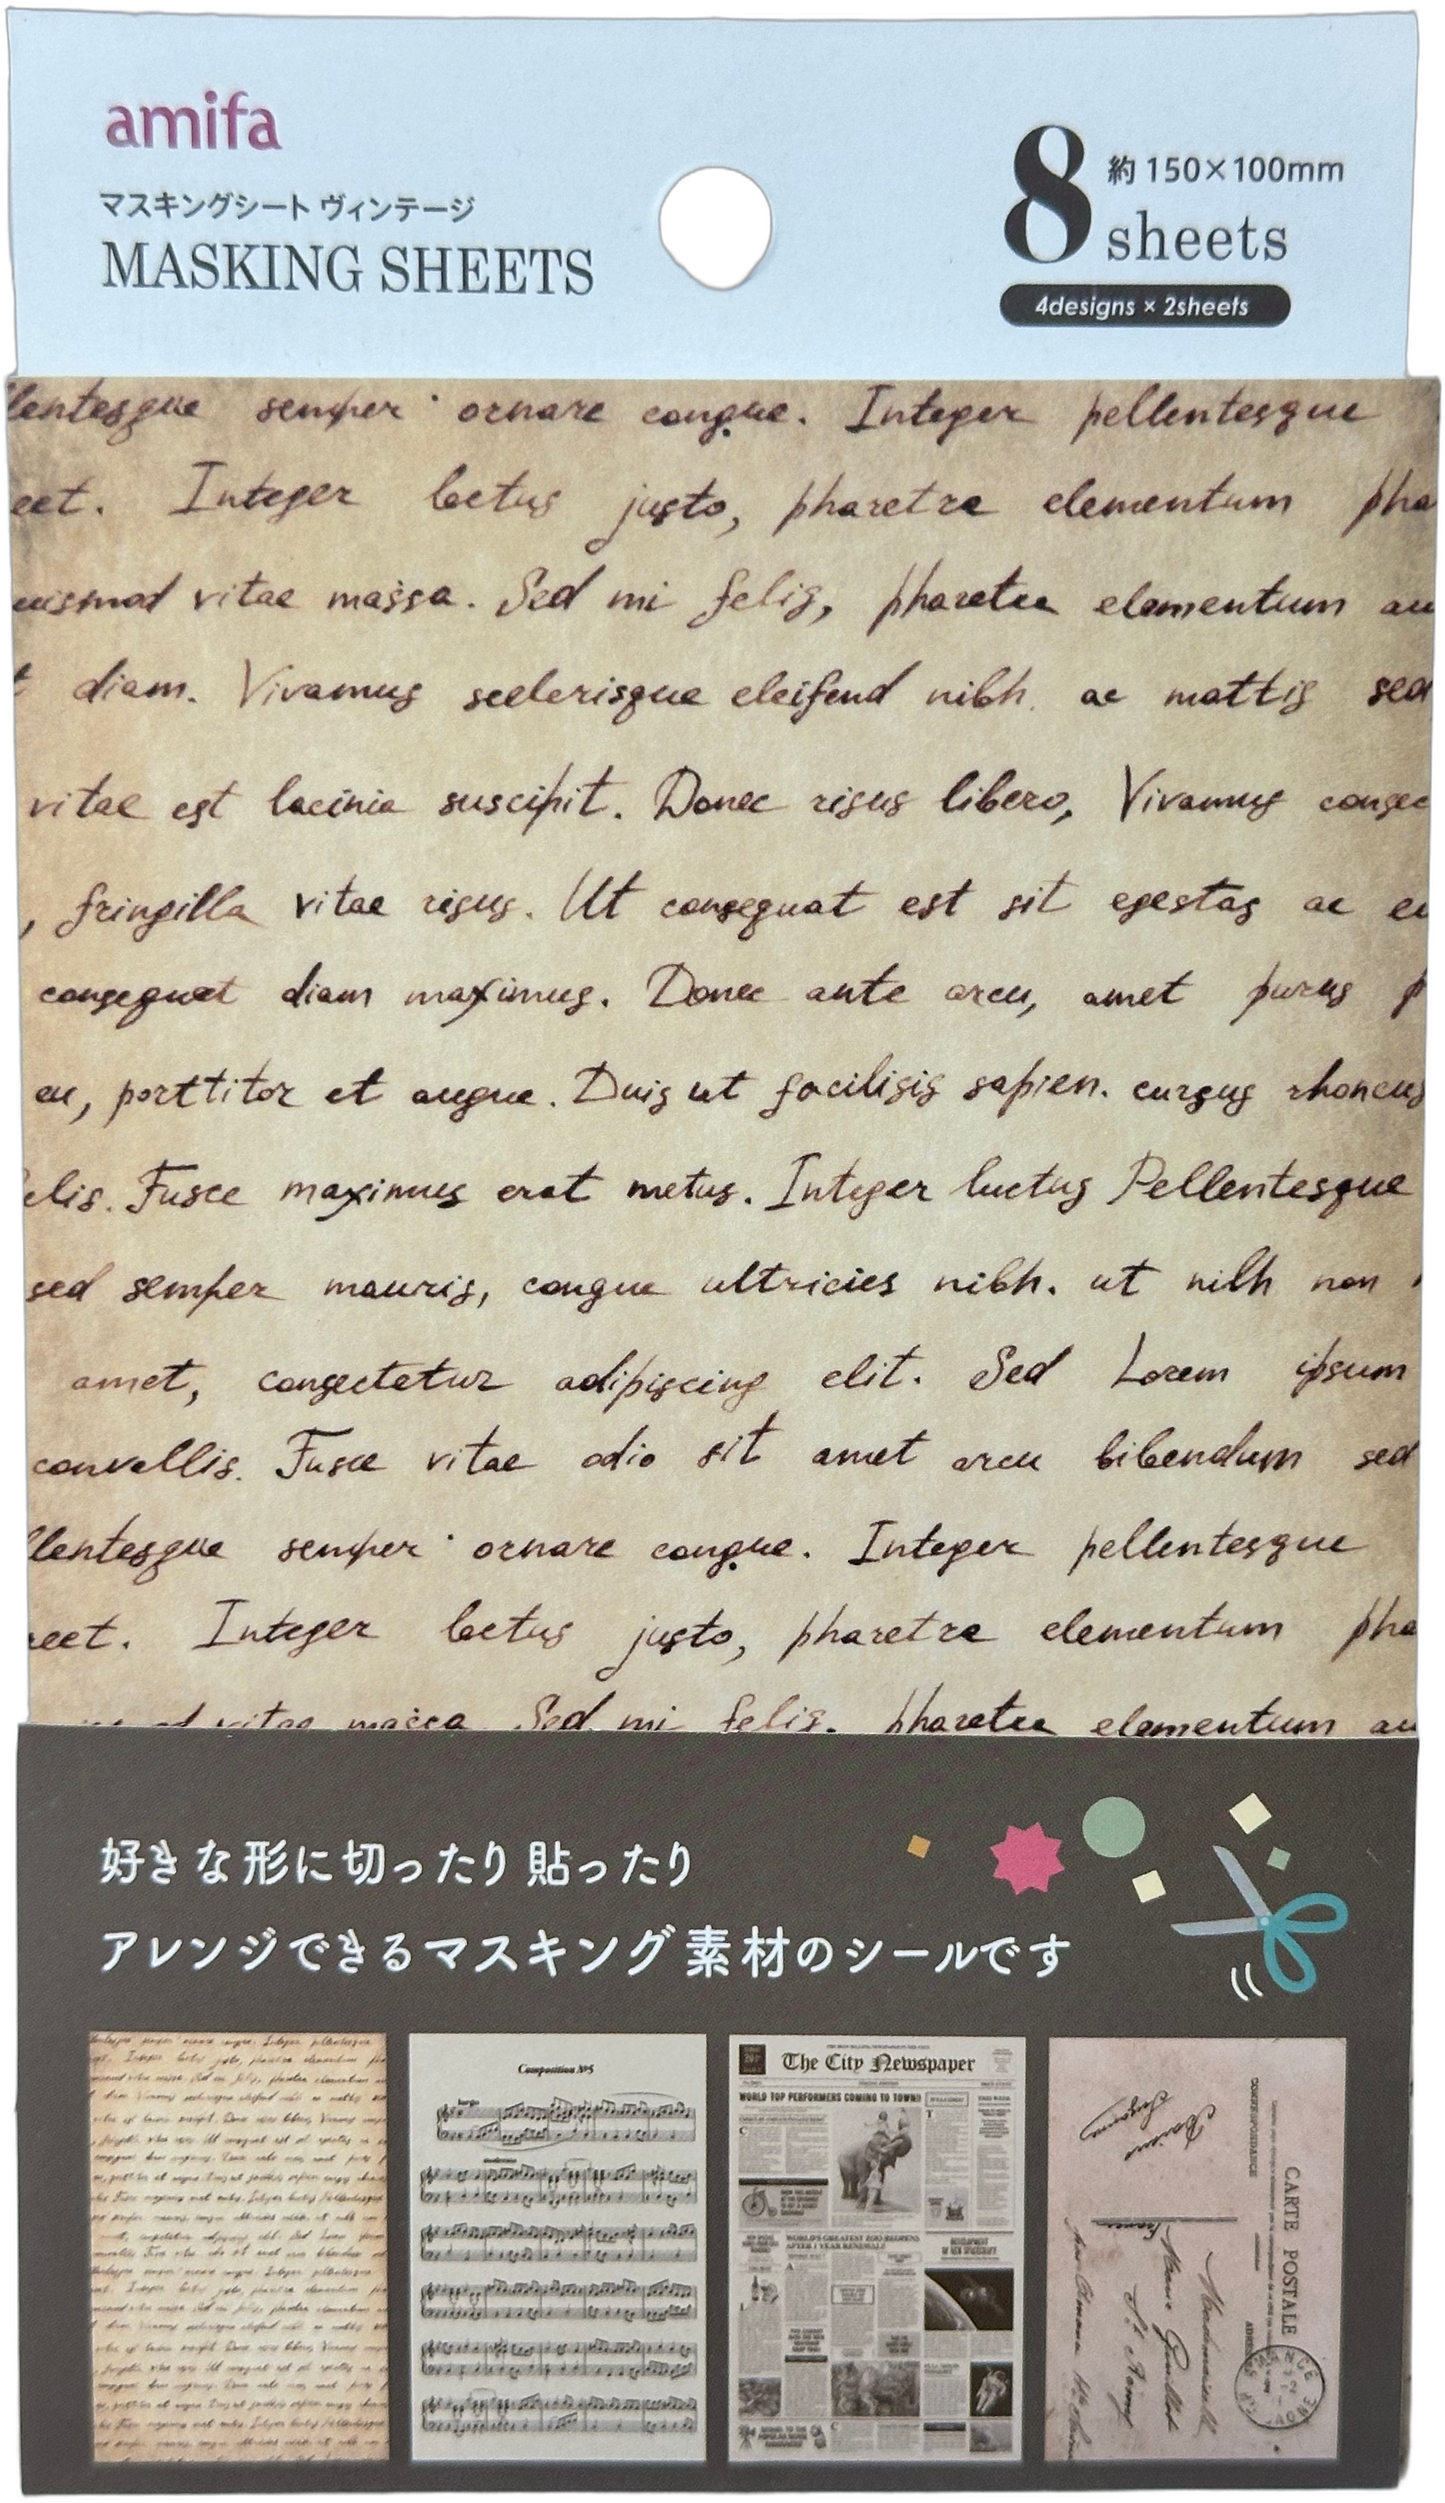 amifa
マスキングシート ヴィンテージ
MASKING SHEETS
8 sheets
約150×100mm
4designs × 2sheets
llentesque semper ornare congue. Integer pellentesque
eet. Integer loctus justo, pharetra elementum pha
uismod vitae massa. Sed mi felis, pharetra elementum au
t diam. Vivamus scelerisque eleifend nibh. ac mattis sed
vitae est lacinia suscipit. Donec risus libero, Vivamus consec
, fringilla vitae risus. Ut consequat est sit egestas ac eu
consequat diam maximus. Donec ante arcu, amet purus p
eu, porttitor et augue. Duis ut facilisis sapien. cursus rhoncus
elis. Fusce maximus erat metus. Integer luctus Pellentesque
sed semper mauris, congue ultricies nibh. ut nibh non
amet, consectetur adipiscing elit. Sed Lorem ipsum
convallis. Fusce vitae odio sit amet arcu bibendum sed
llentesque semper ornare congue. Integer pellentesque
reet. Integer loctus justo, pharetra elementum pha
vitae massa. Sed mi felis. pharetra elementum au
好きな形に切ったり貼ったり
アレンジできるマスキング素材のシールです
Composition №5
The City Newspaper
WORLD TOP PERFORMERS COMING TO TOWN!
WORLD'S GREATEST ZOO REOPENS
AFTER 1 YEAR RENEWAL!
DEVELOPMENT
OF NEW SPACECRAFT
CARTE POSTALE
CORRESPONDANCE